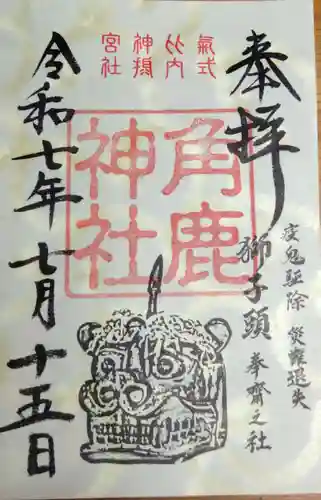 奉拝
疫鬼駆除 災難退失
獅子頭 奉斎之社
氣式
比内
神拇
宮社
角鹿
神社
令和七年 七月 十五日